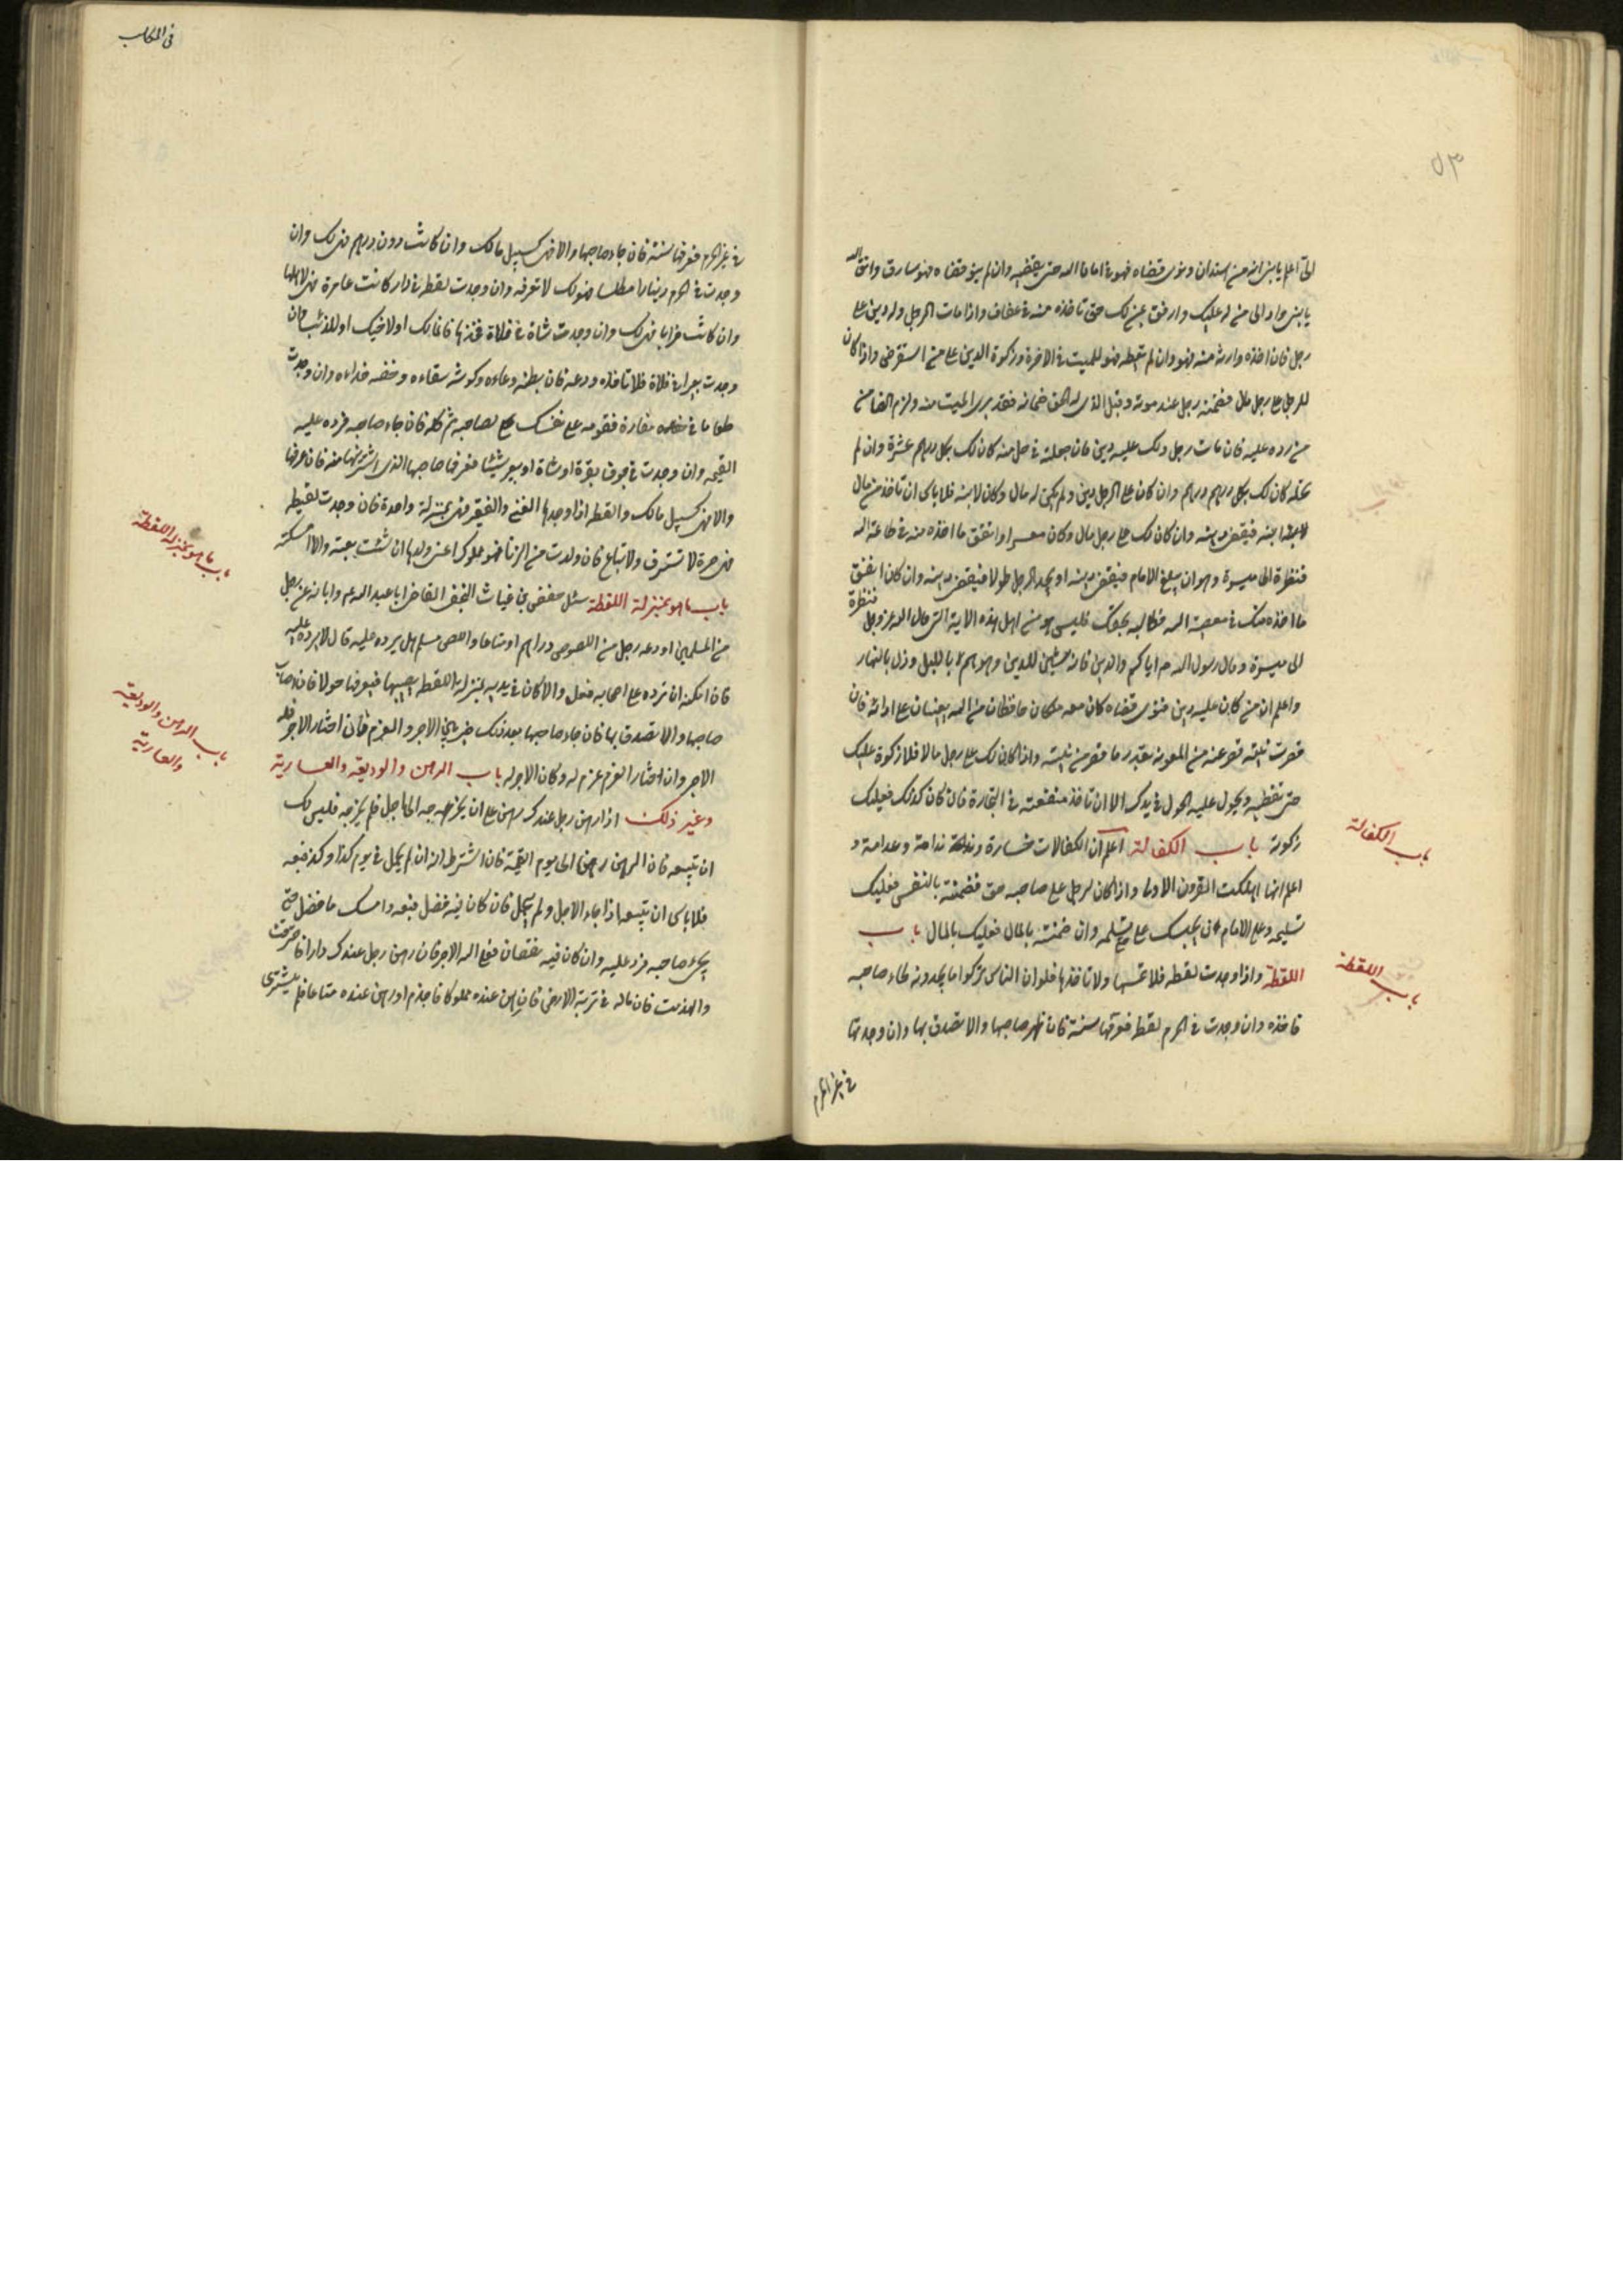 ٥٣
اعلم يا بنى انه من استدان ونوى قضاه فهو فى امان الله حتى يقضيه وان لم ينو قضاه فهو سارق واتق الله
يا بنى واد الى من له عليك وارفق بمن لك حتى تاخذه منه فى عفاف واذا مات الرجل وله دين على
رجل فان اخذه وارثه منه فهو له وان لم يعطه فهو للميت فى الاخرة وزكوة الدين على من استقرض واذا كان
للرجل على رجل مال فضمنه رجل عند موته وقبل الذى له الحق ضمانه فقد برى الميت منه ولزم الضامن
من رده عليه فان مات رجل ولك عليه دين فان جعلته فى حل منه كان لك بكل درهم عشرة وان لم
تحله كان لك بكل درهم درهم وان كان على الرجل دين ولم يكن له مال وكان لابنه فلا باس ان تاخذ من مال
ابنه فيقضى دينه وان كان لك على رجل مال وكان معسرا وانفق ما اخذه منه فى طاعة الله
فنظرة الى ميسرة وهو ان يبلغ الامام فيقضى دينه او يجد الرجل طولا فيقضى دينه وان كان انفق
ما اخذه منك فى معصية الله فطالبه بحقك فليس هو من اهل هذه الاية التى قال الله عز وجل فنظرة
الى ميسرة وقال رسول الله ص اياكم والدين فانه شين للدين وهو هم بالليل وذل بالنهار
واعلم ان من كان عليه دين فنوى قضاه كان معه ملكان حافظان من الله يعينان على ادائه فان
قصرت نيته قصر عنه من المعونة بقدر ما قصر من نيته واذا كان لك على رجل مال فلا زكوة عليك
حتى تقبضه ويحول عليه الحول فى يدك الا ان تاخذ منفعته فى التجارة فان كان كذلك فعليك
زكوته باب الكفالة اعلم ان الكفالات خسارة ندامة وغرامة و
اعلم انها اهلكت القرون الاولى واذا كان لرجل على صاحبه حق فضمنته بالنفس فعليك
تسليمه وعلى الامام ان يحبسك وان ضمنته بالمال فعليك بالمال باب
اللقطة واذا وجدت لقطة فلا تمسها ولا تاخذها فلو ان الناس تركوا ما يجدونه لجاء صاحبه
فاخذه وان وجدت فى الحرم لقطة فعرفها سنة فان ظهر صاحبها والا تصدق بها وان وجدتها
فى غير الحرم
باب الكفالة
باب اللقطة
فى غير الحرم فعرفها سنة فان جاء صاحبها والا فهى كسبيل مالك وان كانت دون درهم فهى لك وان
وجدت فى الحرم دينارا مطلسا فهو لك لا تعرفه وان وجدت لقطة فى دار كانت عامرة فهى لاهلها
وان كانت خرابا فهى لك وان وجدت شاة فى فلاة فخذها فانها لك او لاخيك او للذئب فان
وجدت بعيرا فى فلاة فلا تاخذه ودعه فان بطنه وعاءه وكرشه سقاءه وخفه حذاءه وان وجدت
طعاما فى مفازة فقومه على نفسك لصاحبه ثم كله فان جاء صاحبه فرده عليه
القيمة وان وجدت فى جوف بقرة او شاة او بعير شيئا فعرفها صاحبها الذى اشتريتها منه فان عرفها
والا فهى كسبيل مالك واللقطة اذا وجدها الغنى والفقير فهى بمنزلة واحدة فان وجدت لقيطة
فهى حرة لا تسترق ولا تباع فان ولدت من الزنا فهو مملوك اعنى ولدها ان شئت بعته والا امسكته
باب ما هو بمنزلة اللقطة سئل حفص بن غياث النخعى القاضى ابا عبد الله ع م وابانه عن رجل
من المسلمين اودعه رجل من اللصوص دراهم او متاعا واللص مسلم هل يرده عليه قال لا يرده عليه
فان امكنه ان ترده على اصحابه فعل والا كان فى يديه بمنزلة اللقطة يصيبها فيعرفها حولا فان اصاب
صاحبها والا تصدق بها فان جاء صاحبها بعد ذلك خير بين الاجر والغرم فان اختار الاجر فله
الاجر وان اختار الغرم غرم له وكان الاجر له باب الرهن والوديعة والعارية
وغير ذلك اذا رهن رجل عندك رهن على ان يخرجه الى اجل فلم يخرجه فليس لك
ان تبيعه فان الرهن رهن الى يوم القيمة فان اشترط انه ان لم يحمل فى يوم كذا وكذا فبعه
فلا باس ان تبيعه اذا جاء الاجل ولم يحمل فان كان فيه فضل فبعه وامسك ما فضل حتى
يجىء صاحبه فرد عليه وان كان فيه نقصان فعلى الله الاجر فان رهن رجل عندك دارا فاحترقت
وانهدمت فان ماله فى تربة الارض فان رهن عنده مملوكا فاجذم او رهن عنده متاعا فلم ينشر
باب ما هو بمنزلة اللقطة
باب الرهن والوديعة
والعارية